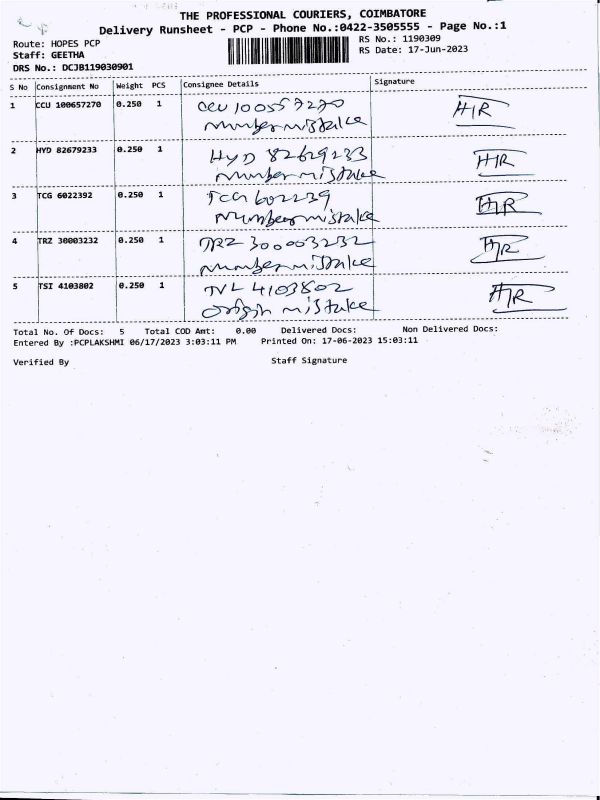 THE PROFESSIONAL COURIERS, COIMBATORE
Delivery Runsheet - PCP - Phone No.:0422-3505555 - Page No.:1
Route: HOPES PCP
RS No.: 1190309
Staff: GEETHA
RS Date: 17-Jun-2023
DRS No.: DCJB119030901
S No Consignment No Weight PCS Consignee Details Signature
1 CCU 100657270 0.250 1 CCU 100557270 HR
number mistake
2 HYD 82679233 0.250 1 HYD 82629233 HR
number mistake
3 TCG 6022392 0.250 1 TCG 602239 HR
number mistake
4 TRZ 30003232 0.250 1 TRZ 300003232 HR
number mistake
5 TSI 4103802 0.250 1 TVL 4103802 HR
origin mistake
Total No. Of Docs: 5 Total COD Amt: 0.00 Delivered Docs: Non Delivered Docs:
Entered By :PCPLAKSHMI 06/17/2023 3:03:11 PM Printed On: 17-06-2023 15:03:11
Verified By Staff Signature